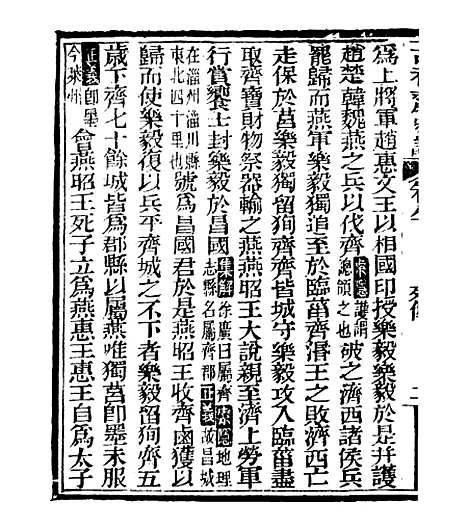 爲上將軍趙惠文王以相國印授樂毅樂毅於是幷護
趙楚韓魏燕之兵以伐齊索隱護謂總領之也破之濟西諸侯兵
罷歸而燕軍樂毅獨追至於臨菑齊湣王之敗濟西亡
走保於莒樂毅獨留狥齊齊皆城守樂毅攻入臨菑盡
取齊寶財物祭器輸之燕燕昭王大說親至濟上勞軍
行賞饗士封樂毅於昌國集解徐廣曰屬齊索隱地理志縣名屬齊郡正義故昌城
在淄州淄川縣東北四十里也號爲昌國君於是燕昭王收齊鹵獲以
歸而使樂毅復以兵平齊城之不下者樂毅留狥齊五
歲下齊七十餘城皆爲郡縣以屬燕唯獨莒卽墨未服
正義卽墨今萊州會燕昭王死子立爲燕惠王惠王自爲太子